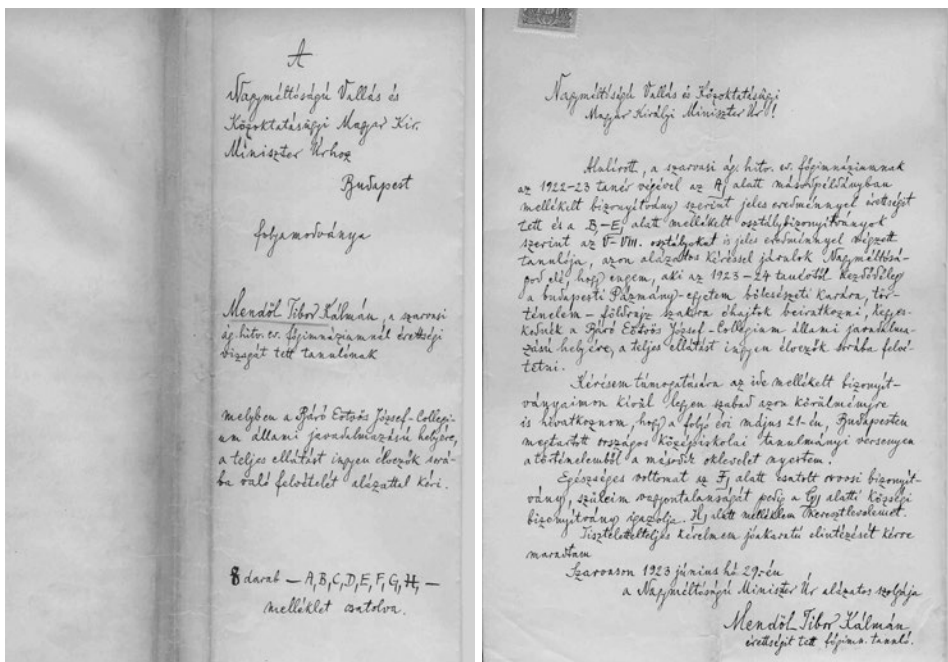 A
Nagyméltóságú Vallás és
Közoktatásügyi Magyar Kir.
Miniszter Úrhoz
Budapest
folyamodványa
Mendöl Tibor Kálmán, a szarvasi
ág. hitv. ev. főgimnáziumnál érettségi
vizsgát tett tanulónak
melyben a Báró Eötvös József-Collegi-
um állami javadalmazású helyére,
a teljes ellátást ingyen élvezők sorá-
ba való felvételét alázattal kéri.
8 darab – A, B, C, D, E, F, G, H, –
melléklet csatolva.
Nagyméltóságú Vallás és Közoktatásügyi
Magyar Királyi Miniszter Úr!
Alulírott, a szarvasi ág. hitv. ev. főgimnáziumnak
az 1922-23 tanév végével az A, alatt másodpéldányban
mellékelt bizonyítvány szerint jeles eredménnyel érettségit
tett és a B,–E, alatt mellékelt osztálybizonyítványok
szerint az V–VIII. osztályokat is jeles eredménnyel végzett
tanulója, azon alázatos kéréssel járulok Nagyméltósá-
god elé, hogy engem, aki az 1923–24 tanévtől kezdődőleg
a budapesti Pázmány-egyetem bölcsészeti karára, tör-
ténelem – földrajz szakra óhajtok beiratkozni, kegyes-
kednék a Báró Eötvös József-Collegium állami javadalma-
zású helyére, a teljes ellátást ingyen élvezők sorába felvé-
tetni.
Kérésem támogatására az ide mellékelt bizonyít-
ványaimon kívül legyen szabad azon körülményre
is hivatkoznom, hogy a folyó évi május 21-én, Budapesten
megtartott országos középiskolai tanulmányi versenyen
a történelemből a második oklevelet nyertem.
Egészséges voltomat az F, alatt csatolt orvosi bizonyít-
vány, szüleim vagyontalanságát pedig a G, alatti községi
bizonyítvány igazolja. H, alatt mellékelem keresztlevelemet.
Tiszteletteljes kérelmem jóakaratú elintézését kérve
maradtam
Szarvason 1923 június hó 29-én
a Nagyméltóságú Miniszter Úr alázatos szolgája
Mendöl Tibor Kálmán
érettségit tett főgimn. tanuló.